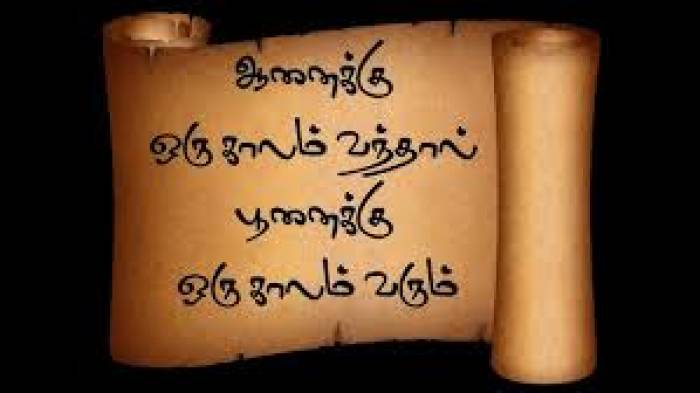 ஆனைக்கு
ஒரு காலம் வந்தால்
பூனைக்கு
ஒரு காலம் வரும்